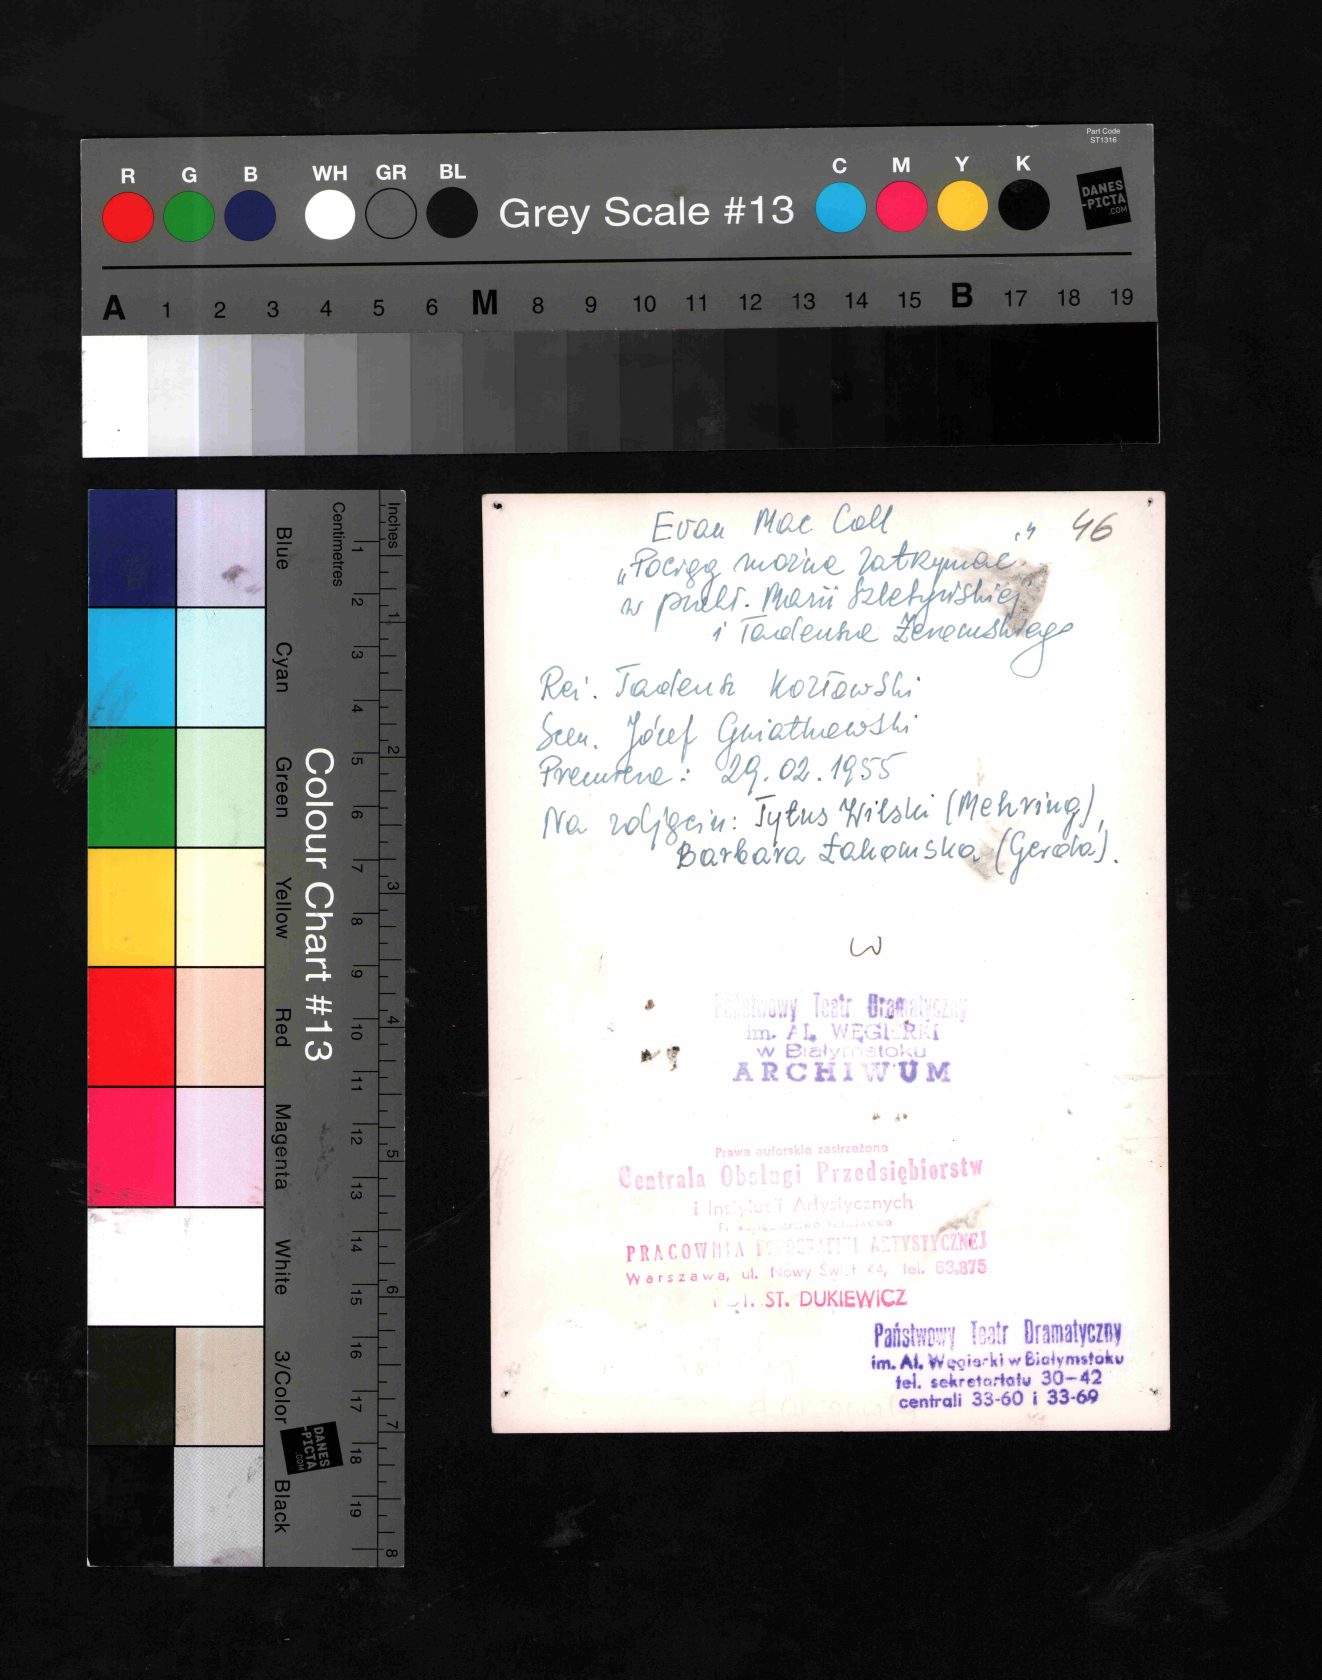 Part Code
ST1316
R G B WH GR BL Grey Scale #13 C M Y K
DANES
-PICTA
.COM
A 1 2 3 4 5 6 M 8 9 10 11 12 13 14 15 B 17 18 19
Colour Chart #13
Blue
Cyan
Green
Yellow
Red
Magenta
White
3/Color
Black
Centimetres
1 2 3 4 5 6 7 8 9 10 11 12 13 14 15 16 17 18 19
Inches
1 2 3 4 5 6 7 8
DANES
-PICTA
.COM
46
Evan Mac Coll
„Pociąg można zatrzymać"
w przekł. Marii
i Tadeusza Żeromskiego
Reż. Tadeusz Kozłowski
Scen. Józef Gniatkowski
Premiera: 29.02.1955
Na zdjęciu: Tytus Wilski (Mehring),
Barbara Łakomska (Gerda).
Państwowy Teatr Dramatyczny
im. AL. WĘGIERKI
w Białymstoku
ARCHIWUM
Prawa autorskie zastrzeżone
Centrala Obsługi Przedsiębiorstw
i Instytucji Artystycznych
PRACOWNIA FOTOGRAFII ARTYSTYCZNEJ
Warszawa, ul. Nowy Świat 44, tel. 63.875
FOT. ST. DUKIEWICZ
Państwowy Teatr Dramatyczny
im. Al. Węgierki w Białymstoku
tel. sekretariatu 30-42
centrali 33-60 i 33-69